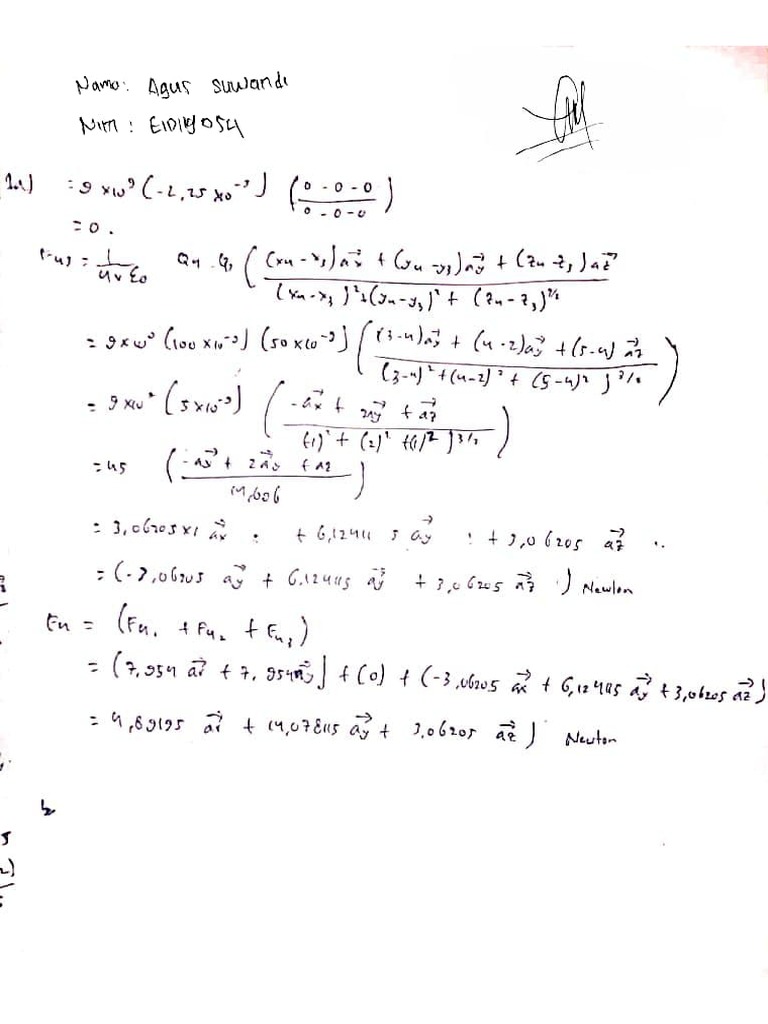 Nama: Agus Suwandi
Nim : E1D119054
1.a) = 9 x10⁹ (-2,25 x10⁻⁹) (0 - 0 - 0 / 0 - 0 - 0)
= 0.
F43 = 1/4π ε0 Q4 . Q3 ((x4 - x3)ax + (y4 - y3)ay + (z4 - z3)az / (x4 - x3)² + (y4 - y3)² + (z4 - z3)^3/2
= 9 x 10⁹ (100 x 10⁻⁹) (50 x 10⁻⁹) ((3-4)ax + (4-2)ay + (5-4) az / (3-4)² + (4-2)² + (5-4)² )^3/2)
= 9 x10⁹ (5 x10⁻⁹) (-ax + 2ay + az / (-1)² + (2)² + (1)² )^3/2)
= 45 (-ay + 2 ay + az / 14,606)
= 3,06205 x1 ax + 6,12411 5 ay + 3,06205 az
= (-3,06205 ay + 6,124115 ay + 3,06205 az ) Newton
F4 = (F4₁ + F42 + F43)
= (7,954 ax + 7,954ay) + (0) + (-3,06205 ax + 6,124115 ay + 3,06205 az)
= 4,89195 ax + 14,078115 ay + 3,06205 az ) Newton
b
5
2)